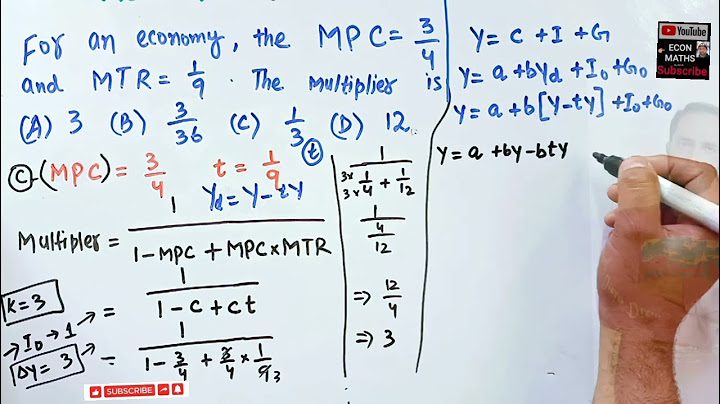 For an economy, the MPC = 3/4
and MTR = 1/9 . The multiplier is
(A) 3 (B) 3/36 (C) 1/3 (D) 12
C-(MPC) = 3/4 t = 1/9 (t)
Yd = Y - tY
Multipler = 1/(1-MPC + MPC×MTR)
K=3
= 1/(1-c+ct)
→ I0 → 1 →
ΔY = 3 →
= 1/(1 - 3/4 + 3/4 × 1/9 3
1/(3× 1/3× 1/4 + 1/12)
1/(4/12)
⇒ 12/4
⇒ 3
Y = C + I + G
Y = a + bYd + I0 + G0
Y = a + b[Y-tY] + I0 + G0
Y = a + bY - btY
YouTube
ECON
MATHS
Subscribe
SUBSCRIBE